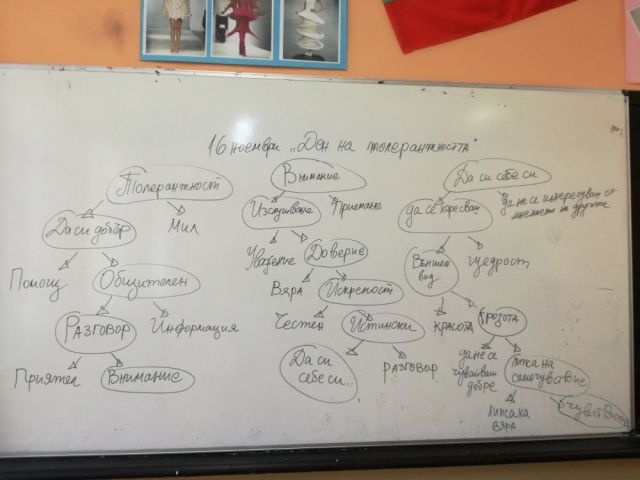 16 ноември „Ден на толерантността"
Толерантност
Внимание
Да си себе си
Да си добър
Мил
Изслушване
Приемане
да се харесваш
да не се интересуваш от
мнението на другите
Помощ
Общителен
Уважение
Доверие
Външен
вид
Щедрост
Разговор
Информация
Вяра
Искреност
красота
грозота
Приятел
Внимание
Честен
Истински
Да си
себе си...
разговор
да не се
чувстваш
добре
липса на
самочувствие
липса на
вяра